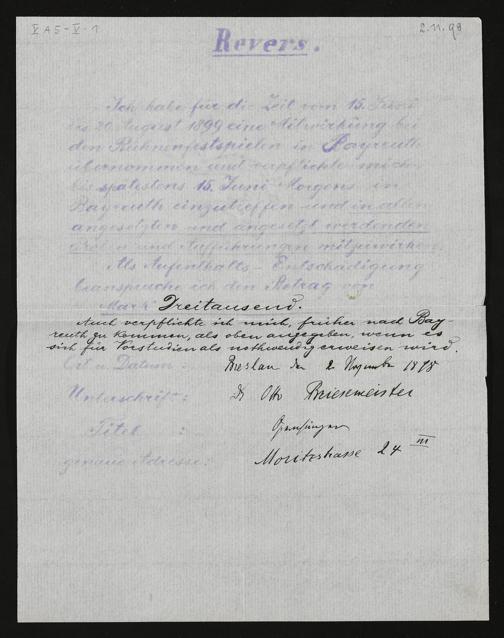 V A 5 - V - 1
2.11.98
Revers.
Ich habe für die Zeit vom 15. Juni
bis 20. August 1899 eine Mitwirkung bei
den Bühnenfestspielen in Bayreuth
übernommen und verpflichte mich
bis spätestens 15. Juni Morgens in
Bayreuth einzutreffen und in allen
angesetzten und angesetzt werdenden
Proben und Aufführungen mitzuwirken.
Als Aufenthalts-Entschädigung
beanspruche ich den Betrag von
Mark Dreitausend.
Auch verpflichte ich mich, früher nach Bay-
reuth zu kommen, als oben angegeben, wenn es
sich für Vorstudien als nothwendig erweisen wird.
Ort u. Datum: Breslau den 2. November 1898
Unterschrift: Dr Otto Briesemeister
Titel: Opernsänger
genaue Adresse: Moritzstrasse 24 III